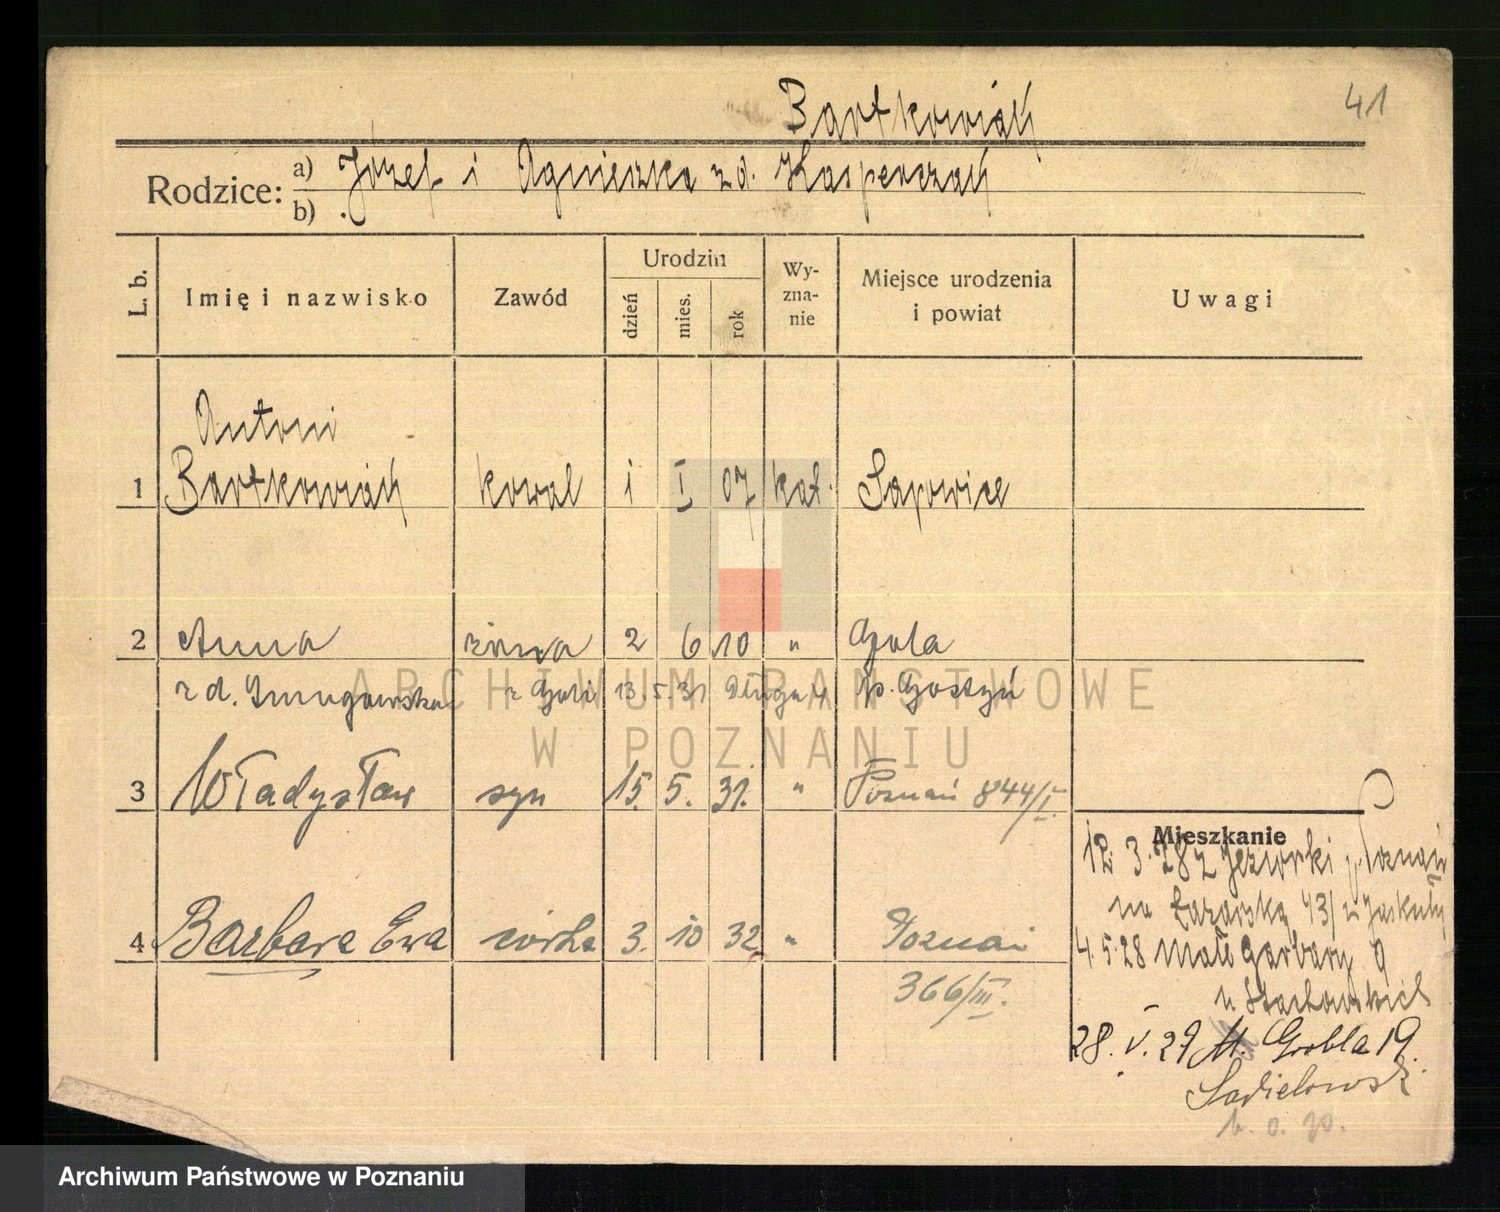 Bartkowiak
41
Rodzice: a) Józef i Agnieszka z d. Kasperczak
b) .
L. b.
Imię i nazwisko
Zawód
Urodzin
dzień
mies.
rok
Wy-
zna-
nie
Miejsce urodzenia
i powiat
Uwagi
Antoni
1 Bartkowiak kowal 1 I 07 kat. Sapowice
2 Anna żona 2 6 10 " Gola
z d. z Goli 13.5.31 Długa p. Gostyń
3 Władysław syn 15. 5. 31. " Poznań 844/I.
4 Barbara Ewa córka 3. 10 32 " Poznań
366/III.
Mieszkanie
12. 3. 28 z Jeziorki p. Poznań
na Łazarską 43/
4.5.28 Małe Garbary 9
u Stachowskich
28. V. 29 M. Grobla 19.
ARCHIWUM PAŃSTWOWE
W POZNANIU
Archiwum Państwowe w Poznaniu